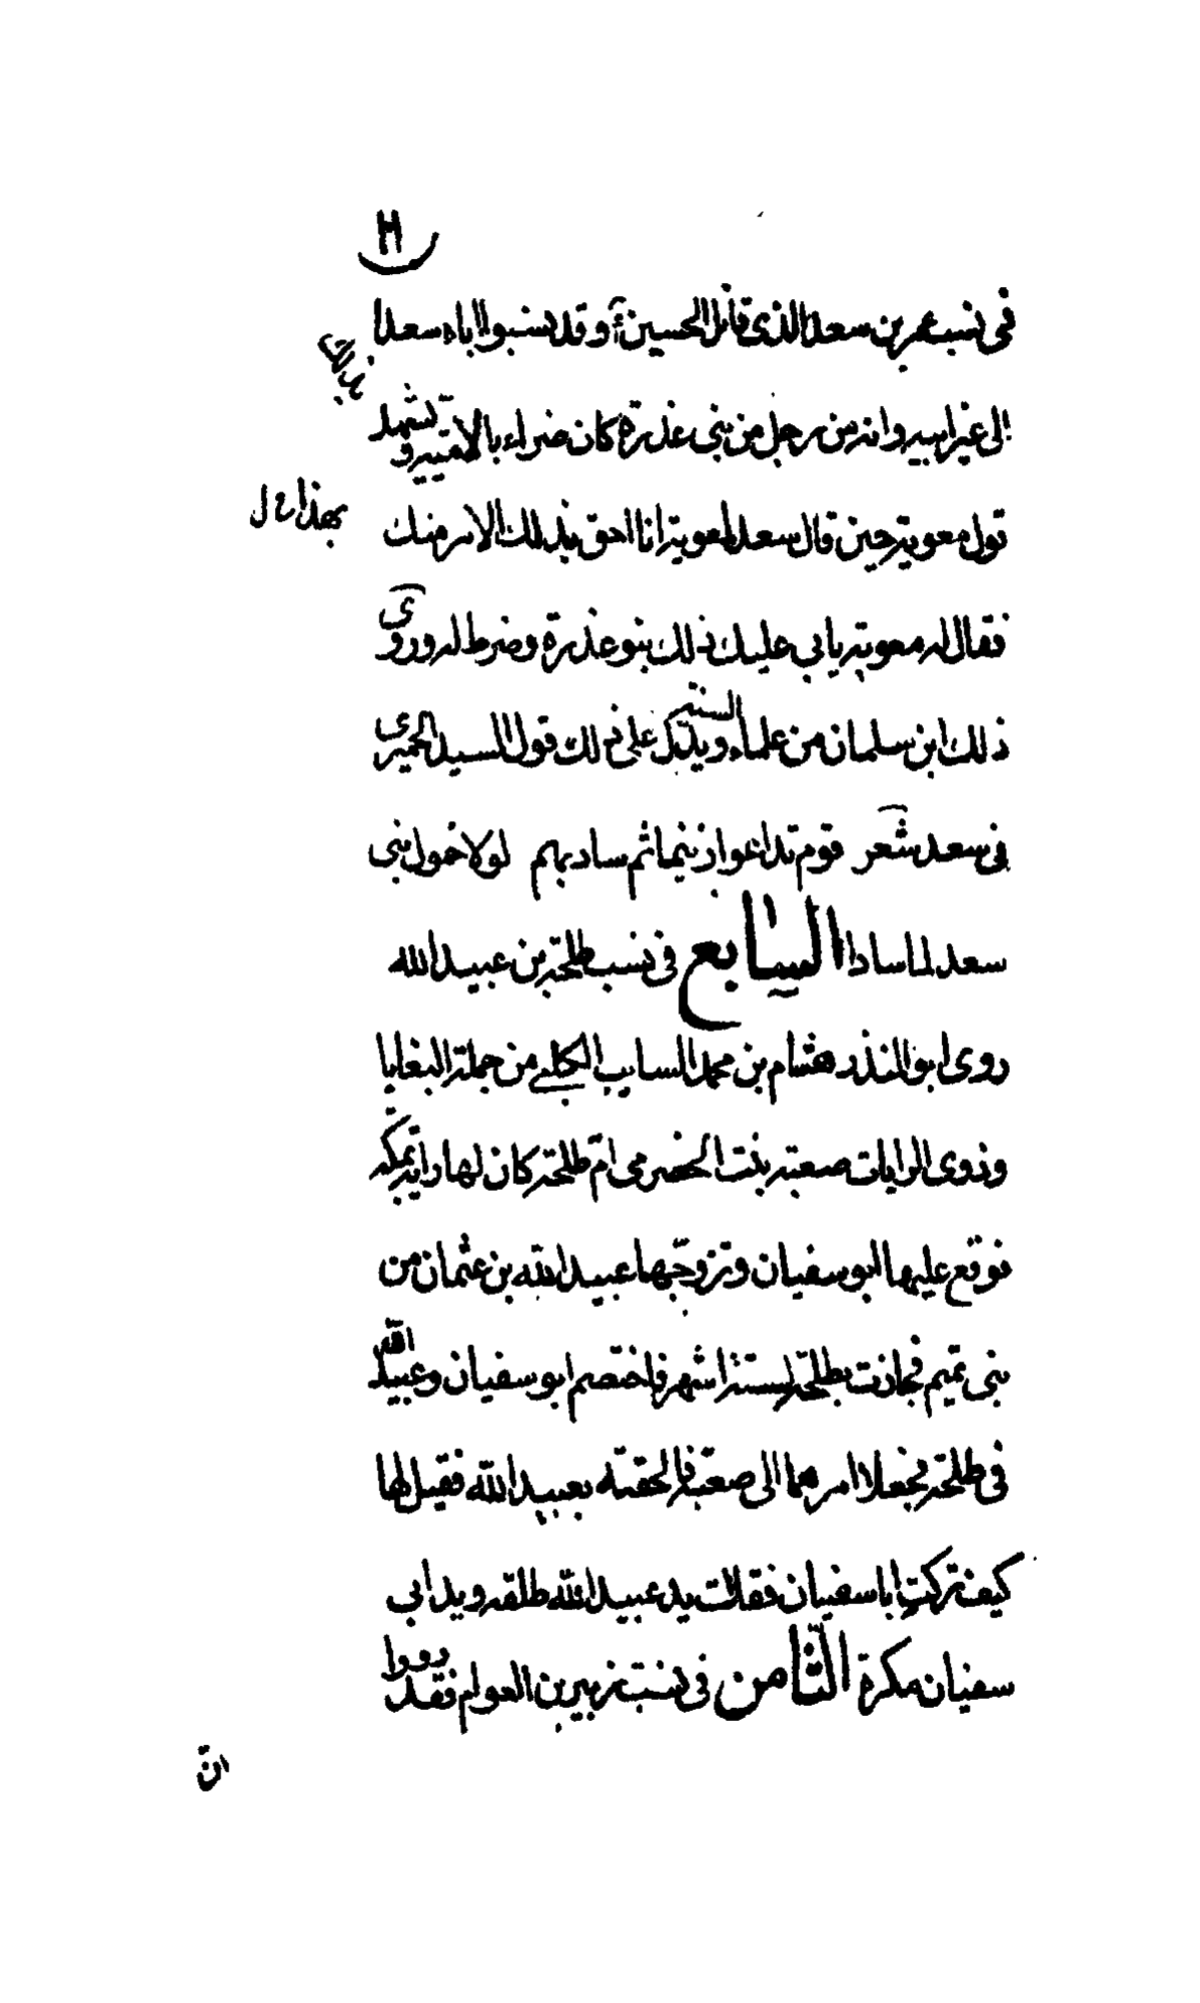 في نسب عمر بن سعد الذي قاتل الحسين ع وقد نسبوا اباه سعدا
الى غير ابيه وانه من رجل من بني عذرة كان خدنا لامه ويشهد
بذلك
قول معوية حين قال سعد لمعوية انا احق بذلك الامر منك
بهذا خ ل
فقال له معوية يابي عليك ذلك بنو عذرة وضرط له وروى
ذلك ابن سلمان من علماء السنة ويدل على ذلك قول السيد الحميري
في سعد شعر قوم تداعوا زنيما ثم سادبهم لولا خمول بني
سعد لما سادا السابع في نسب طلحة بن عبيد الله
روى ابو المنذر هشام بن محمد السايب الكلبي من جملة البغايا
وذوى الرايات صعبة بنت الحضرمي ام طلحة كان لها راية بمكة
فوقع عليها ابو سفيان وتزوجها عبيد الله بن عثمان من
بني تميم فجاءت بطلحة لستة اشهر فاختصم ابو سفيان وعبيد الله
في طلحة فجعلا امرهما الى صعبة فالحقته بعبيد الله فقيل لها
كيف تركت ابا سفيان فقالت يد عبيد الله طلقه ويد ابي
سفيان مكرة الثامن في نسب زبير بن العوام فقد رووا
ان